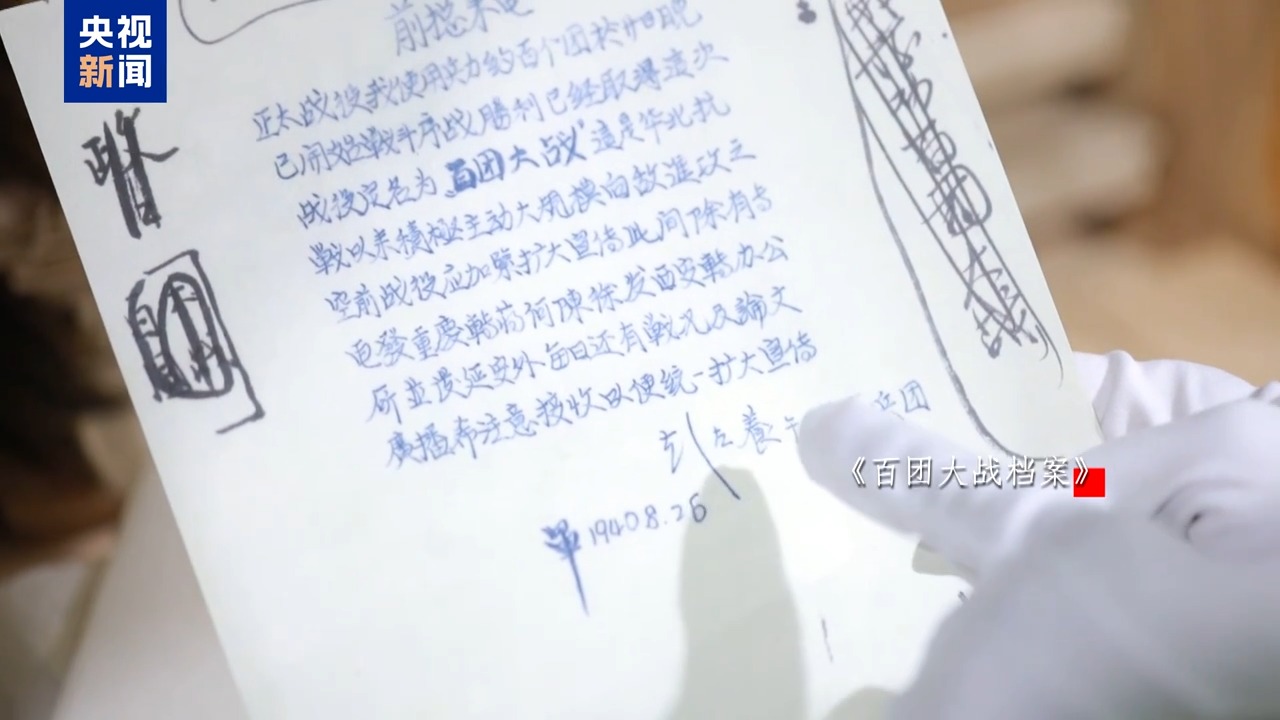 央视
新闻
前总来电
正太战役我使用兵力约百个团于廿日晚
已开始戰斗序战勝利已经取得這次
战役定名为百团大战"這是华北抗
戰以来積极主动大规模向敌進攻之
空前战役应加紧扩大宣传此间除有专
电發重慶轉蔣何陳徐发西安轉办公
所並從延安外每日还有戰况及論文
廣播希注意接收以便统一扩大宣传
彭左養
兵团
1940 8.26
《百团大战档案》